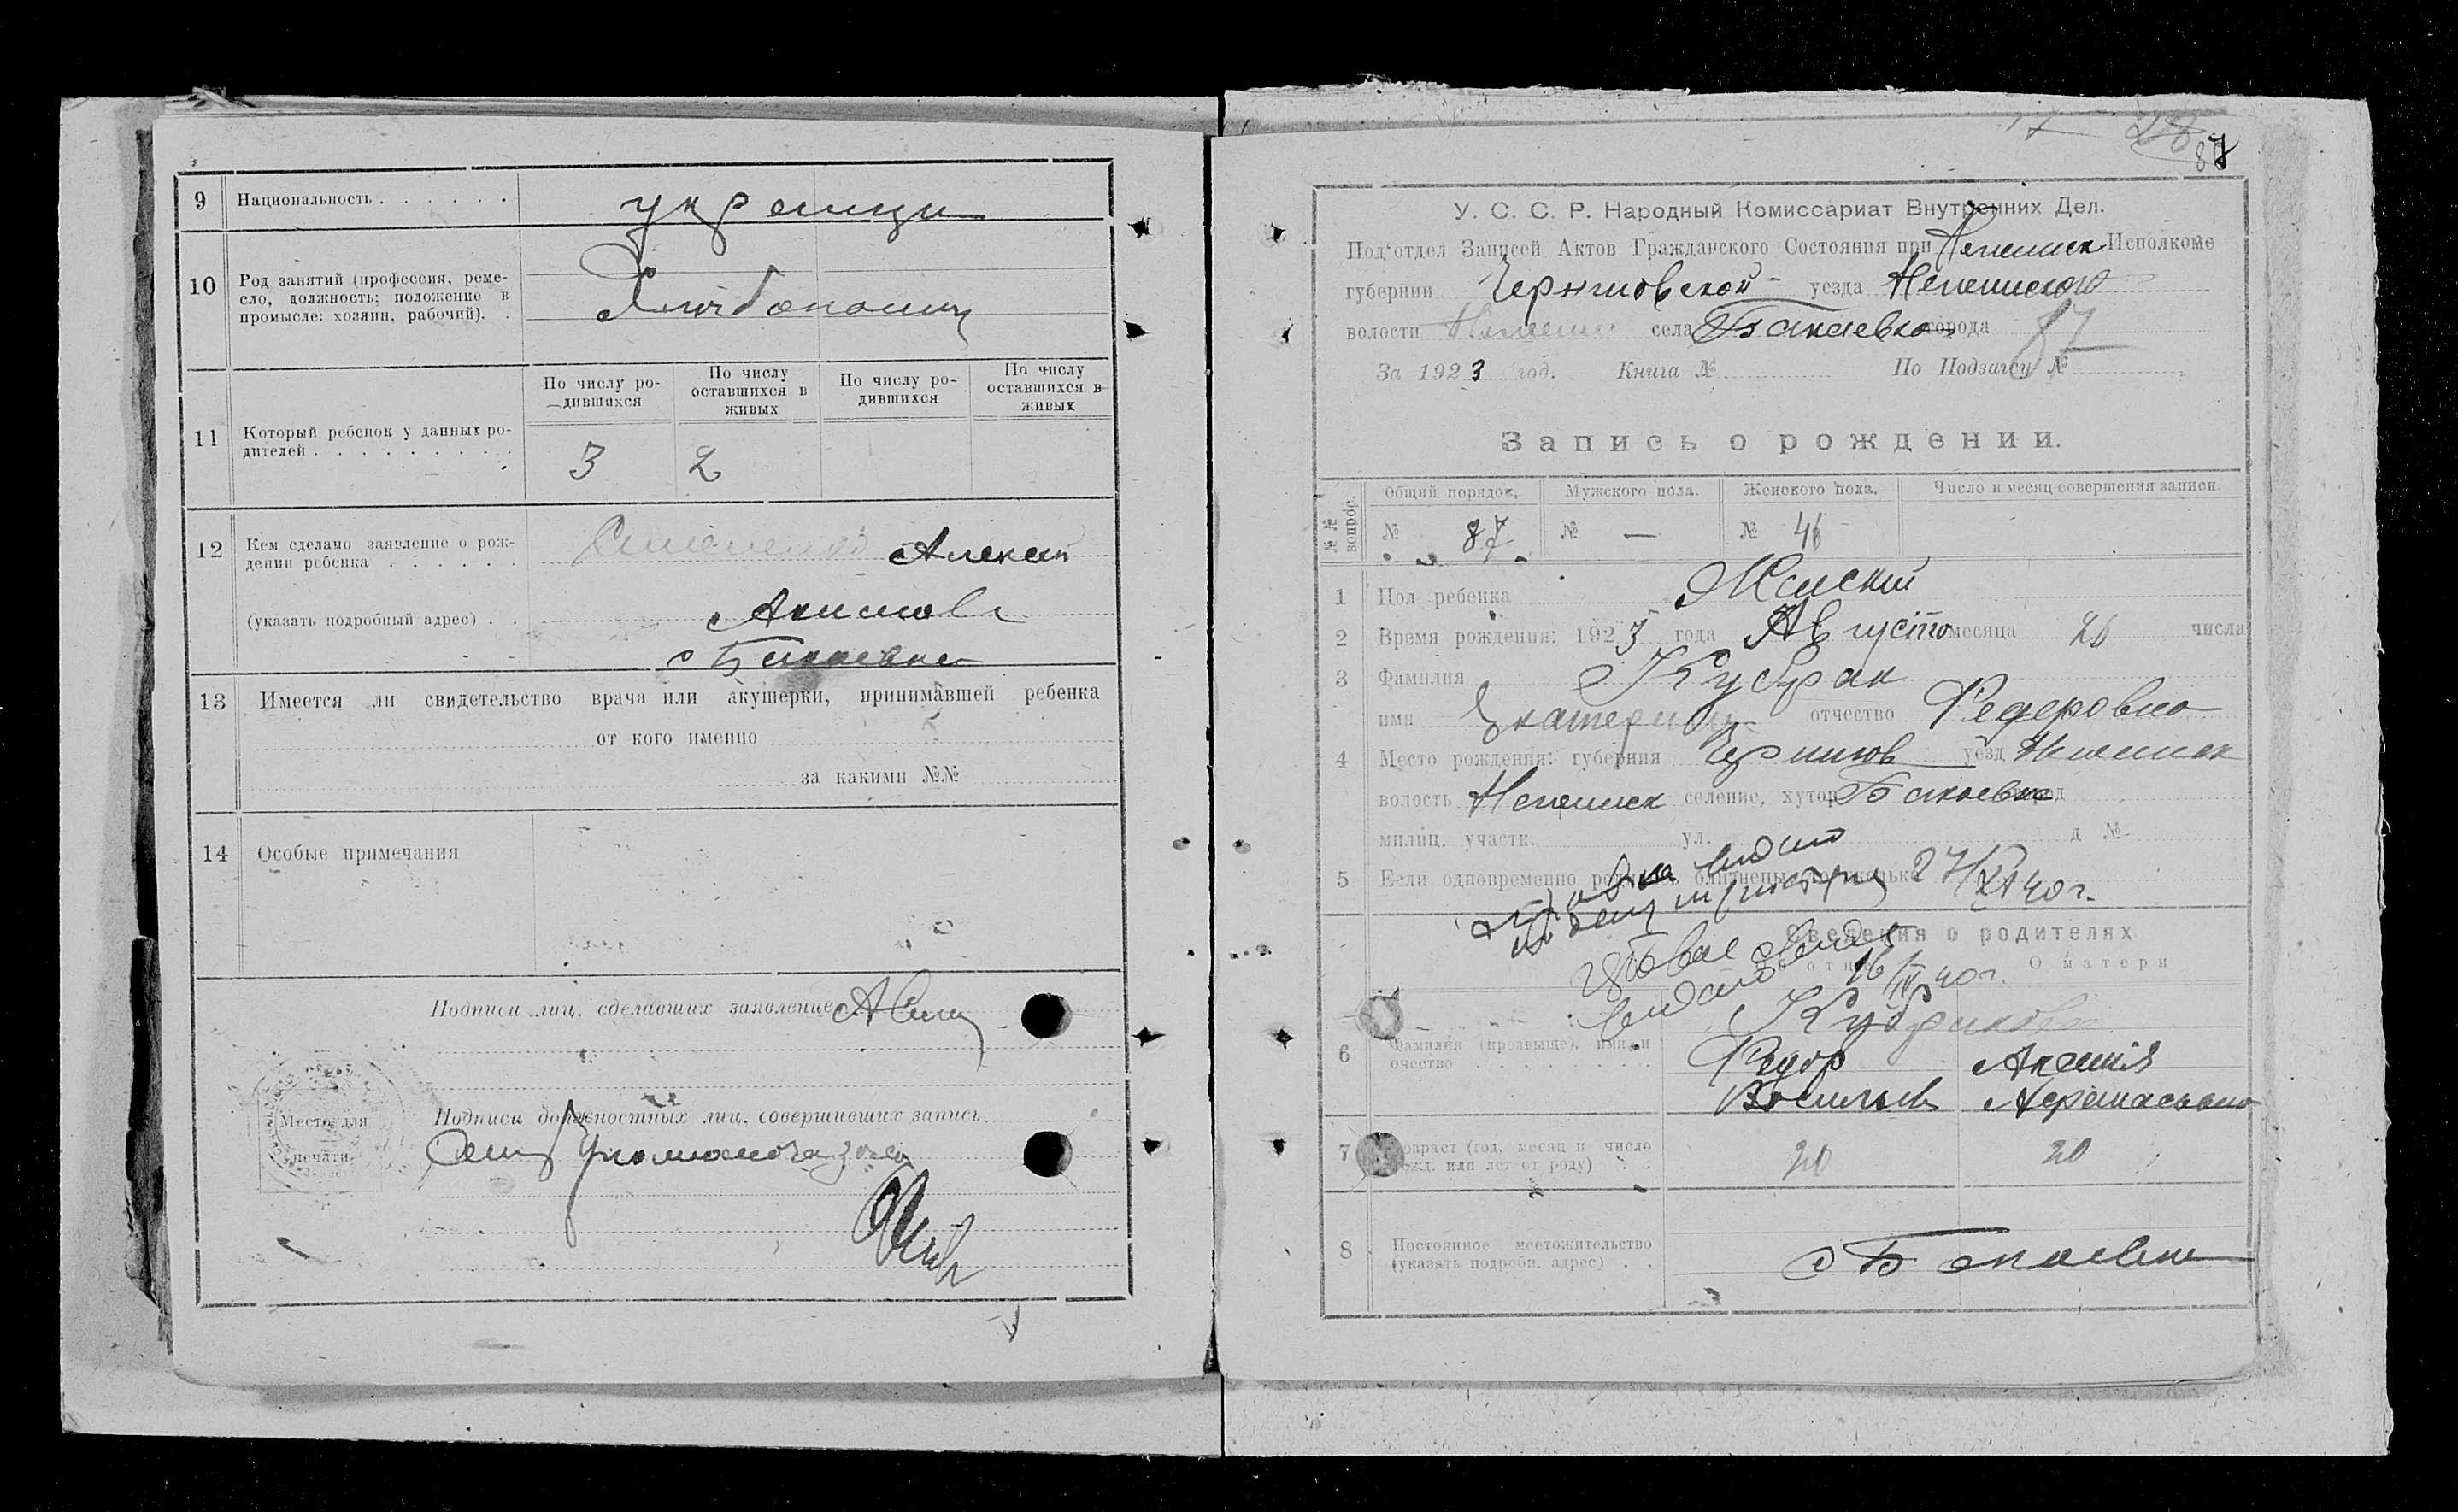 9 Национальность . . . . . . украинцы
10 Род занятий (профессия, реме-
сло, должность; положение в
промысле: хозяин, рабочий). .
Хлибопашец
По числу ро-
дившихся
По числу
оставшихся в
живых
По числу ро-
дившихся
По числу
оставшихся в
живых
11 Который ребенок у данных ро-
дителей . . . . . . . . .
3 2
12 Кем сделано заявление о рож-
дении ребенка . . . . . .
Алексей
(указать подробный адрес) . . Акимов
с Бакаевка
13 Имеется ли свидетельство врача или акушерки, принимавшей ребенка
от кого именно
за какими №№
14 Особые примечания
Подписи лиц, сделавших заявление
Подписи должностных лиц, совершивших запись
Место для
печати
28
87
У. С. С. Р. Народный Комиссариат Внутренних Дел.
Под'отдел Записей Актов Гражданского Состояния при Исполкоме
губернии Черниговской уезда
волости села Бакаевка города
87
За 1923 год. Книга № По Подзагсу №
Запись о рождении.
№ № вопрос.
Общий порядок. Мужского пола. Женского пола. Число и месяц совершения записи.
№ 87 № — № 46
1 Пол ребенка Женский
2 Время рождения: 1923 года Августо месяца 26 числа
3 Фамилия Кубрак
имя Екатерина отчество Федеровна
4 Место рождения: губерния Чернигов уезд
волость селение, хутор Бакаевка город
милиц. участк. ул. д №
5 Если одновременно родились близнецы, то сколько
справка видано
27/XI 40 г.
Сведения о родителях
Об отце О матери
16/IV 40 г.
видано
6 Фамилия (прозвище), имя и
очество . . . . . . . . .
Кубракови
Федор Аксения
Васильев
7 Возраст (год, месяц и число
рожд. или лет от роду) . .
20 20
8 Постоянное местожительство
(указать подробн. адрес) . .
с Бакаевка